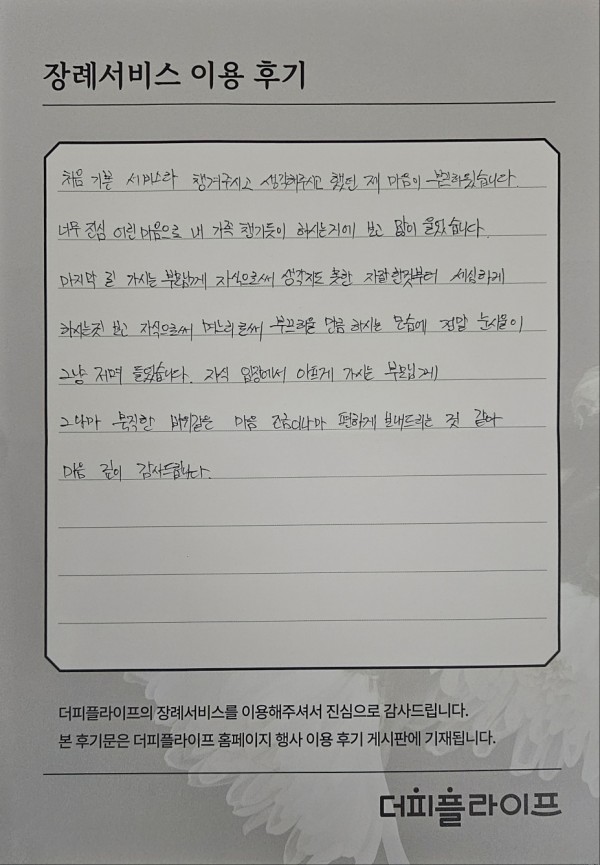 장례서비스 이용 후기
처음 기본 서비스라 챙겨주시고 생각해주시고 했던 제 마음이 하였습니다.
너무 진심 어린 마음으로 내 가족 챙기듯이 하시는거에 보고 많이 울었습니다.
마지막 길 가시는 부모님께 자식으로써 생각지도 못한 자잘한것부터 세심하게
하시는것 보고 자식으로써 며느리로써 부끄러울 만큼 하시는 모습에 정말 눈시울이
그냥 저며 들었습니다. 자식 입장에서 아프게 가시는 부모님께
그나마 묵직한 바위같은 마음 조금이나마 편하게 보내드리는 것 같아
마음 깊이 감사드립니다.
더피플라이프의 장례서비스를 이용해주셔서 진심으로 감사드립니다.
본 후기문은 더피플라이프 홈페이지 행사 이용 후기 게시판에 기재됩니다.
더피플라이프